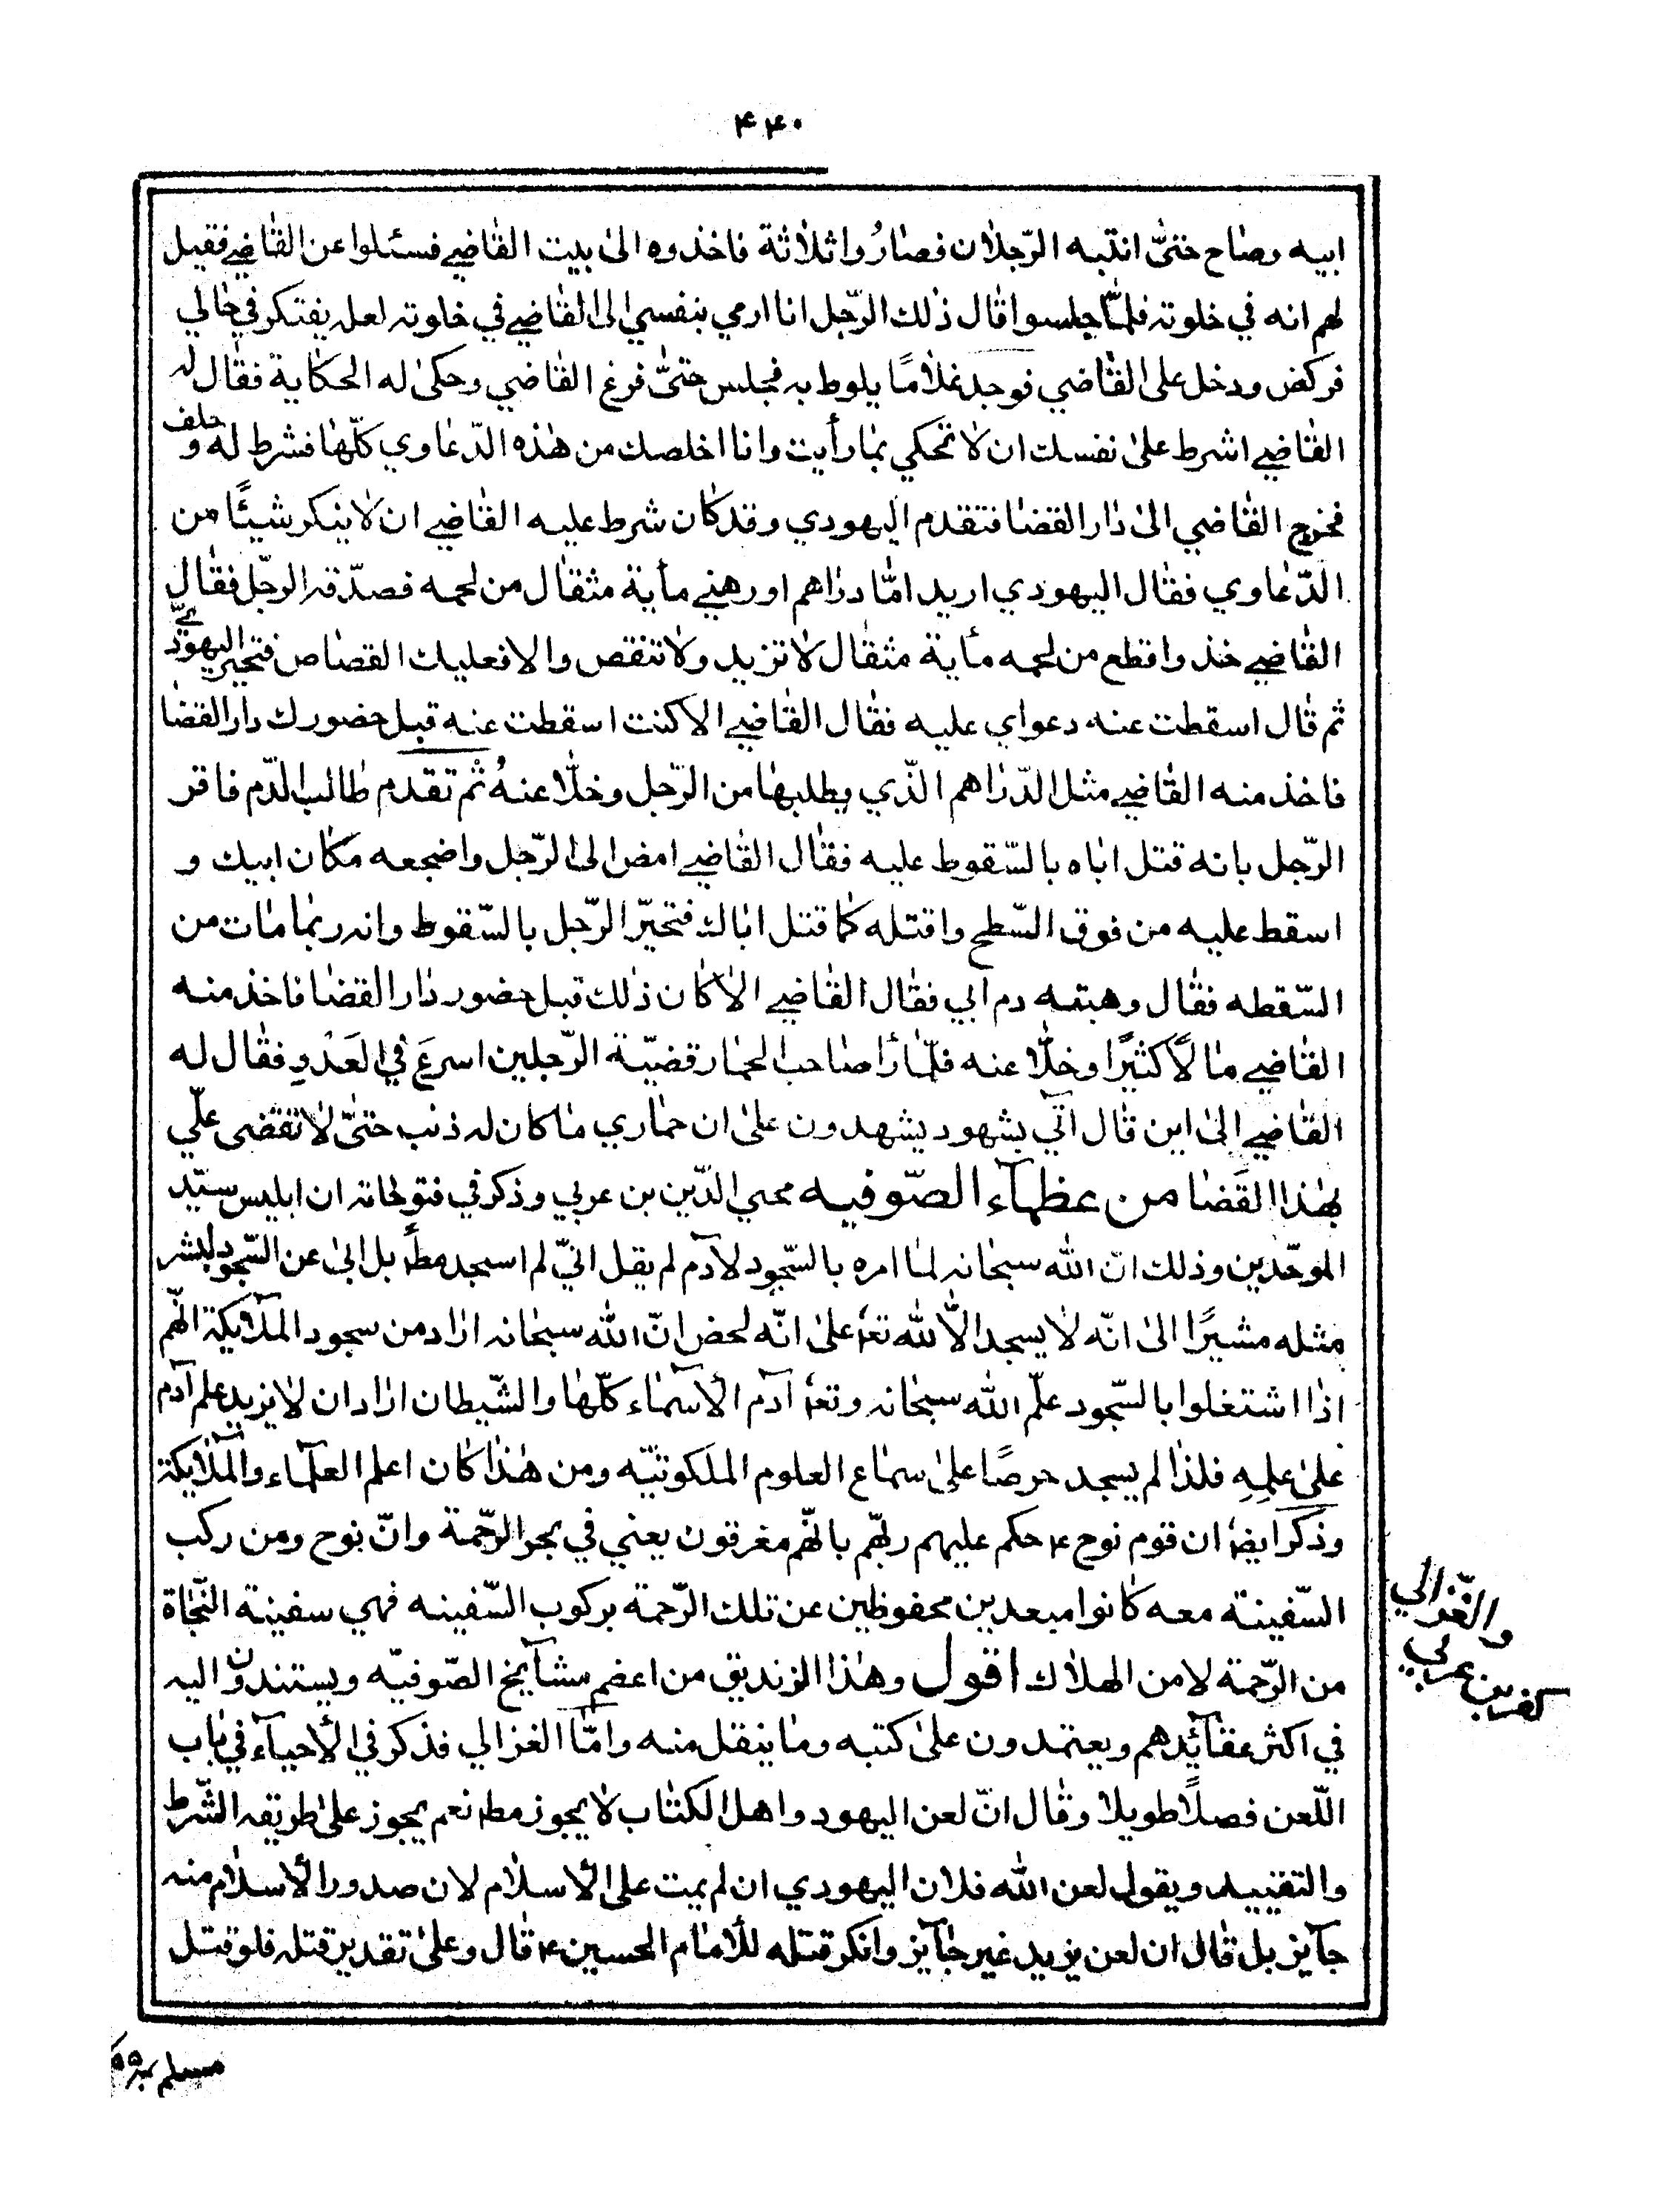 ۴۴۰
ابيه وصاح حتىّ انتبه الرّجلان فصارُوا ثلاثة فاخذوه الى بيت القاضي فسئلوا عن القاضي فقيل
لهم انه في خلوته فلمّا جلسوا قال ذلك الرّجل انا ارمي بنفسي الى القاضي في خلوته لعله يفتكر في حالي
فركض ودخل على القاضي فوجد غلامًا يلوط به فجلس حتىّ فرغ القاضي وحكى له الحكاية فقال له
القاضي اشرط على نفسك ان لا تحكي بما رأيت وانا اخلصك من هذه الدّعاوي كلّها فشرط له و حلف
فخرج القاضي الى دار القضا فتقدم اليهودي وقد كان شرط عليه القاضي ان لا ينكر شيئًا من
الدّعاوي فقال اليهودي اريد امّا دراهم اورهني مأية مثقال من لحمه فصدّقه الرجّل فقال
القاضي خذ واقطع من لحمه مأية مثقال لا تزيد ولا تنقص والا فعليك القصاص فتحيّر اليهوديّ
ثم قال اسقطت عنه دعواي عليه فقال القاضي الا كنت اسقطت عنه قبل حضورك دار القضا
فاخذ منه القاضي مثل الدّراهم الّذي يطلبها من الرّجل وخلّا عنهُ ثم تقدم طالب الدّم فاقر
الرّجل بانه قتل اباه بالسّقوط عليه فقال القاضي امض الى الرّجل واضجعه مكان ابيك و
اسقط عليه من فوق السّطح واقتله كما قتل اباك فتحيّر الرّجل بالسّقوط وانه ربما مات من
السّقطه فقال وهبته دم ابي فقال القاضي الا كان ذلك قبل حضور دار القضا فاخذ منه
القاضي مالًا كثيرًا وخلّا عنه فلمّا رأ صاحب الحمار قضيّة الرّجلين اسرعَ في العَدْوِ فقال له
القاضي الى اين قال آتي بشهود يشهدون على ان حماري ما كان له ذنب حتىّ لا تقضى علّي
بهذا القَضا من عظمآء الصّوفيه محيي الدّين بن عربي وذكر في فتوحاته ان ابليس سيّد
الموحّدين وذلك انّ الله سبحانه لما امره بالسّجود لآدم لم يقل انيّ لم اسجد مطأ بل ابى عن السّجود لبشر
مثله مشيرًا الى انّه لا يسجد الّا لله تعا على انّه لحض انّ الله سبحانه اراد من سجود الملآيكة انّهم
اذا اشتغلوا بالسّجود علّم الله سبحانه وتعا آدم الأسماء كلّها والشّيطان اراد ان لا يزيد علم آدم
على علمِهِ فلذا لم يسجد حرصًا على سماع العلوم الملَكوتيّه ومن هذا كان اعلم العلماء والملآيكة
وذكر ايضا ان قوم نوح ع حكم عليهم ربّهم بانّهم مغرقون يعني في بحر الرحّمة وانّ نوح ومن ركب
السّفينة معه كانوا مبعدين محفوظين عن تلك الرّحمة بركوب السّفينه فهي سفينة النّجاة
من الرّحمة لا من الهلاك اقول وهذا الزنديق من اعضم مشآيخ الصّوفيّه ويستندون اليه
في اكثر عقآئدهم ويعتمدون على كتبه وما ينقل منه وامّا الغزالي فذكر في الأحيآء في باب
اللّعن فصلًا طويلا وقال انّ لعن اليهود واهل الكتاب لا يجوز مطا نعم يجوز على طريقه الشّرط
والتقييد ويقول لعن الله فلان اليهودي ان لم يمت على الأسلام لان صدور الأسلام منه
جآيز بل قال ان لعن يزيد غير جآيز وانكر قتله للأمام الحسين ع قال وعلى تقدير قتله فلو قتل
كفر بن عربي
والغزالي